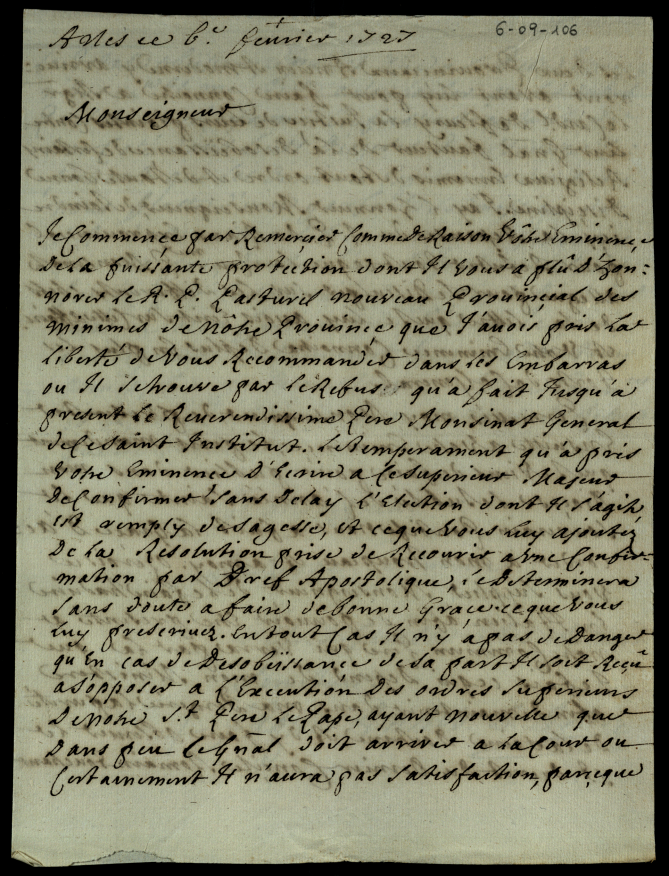 6-09-106
Arles ce 6.e février 1727
Monseigneur
Je Commence par Remercier Comme de Raison Vôtre Eminence,
De la puissante protection dont Il vous a plû D'hon=
norer le R. P. Pasturel nouveau Provincial des
minimes de Nôtre Province que J'avois pris La
liberté de vous Recommander dans les Embarras
ou Il se trouve par le Refus qu'a fait Jusqu'a
present le Reverendissime Pere Monsinat General
de Ce saint Institut. Le temperament qu'a pris
Votre Eminence D'Ecrire a Ce superieur Majeur
De Confirmer sans Delay L'Election dont Il s'agit
est remply de sagesse, et ce que vous Luy ajoutez
De la Resolution prise de Recourir a une Confir=
mation par Bref Apostolique, le Determinera
sans doute a faire de bonne Grace ce que Vous
Luy prescrivez. En tout Cas Il n'y a pas de Danger
qu'En cas de Desobeïssance de sa part Il soit Reçu
a s'opposer a L'Execution Des ordres superieurs
De Notre S.t Pere le Pape, ayant nouvelle que
Dans peu Le Gñal Doit arriver a la Cour ou
Certainement Il n'aura pas satisfaction, parceque